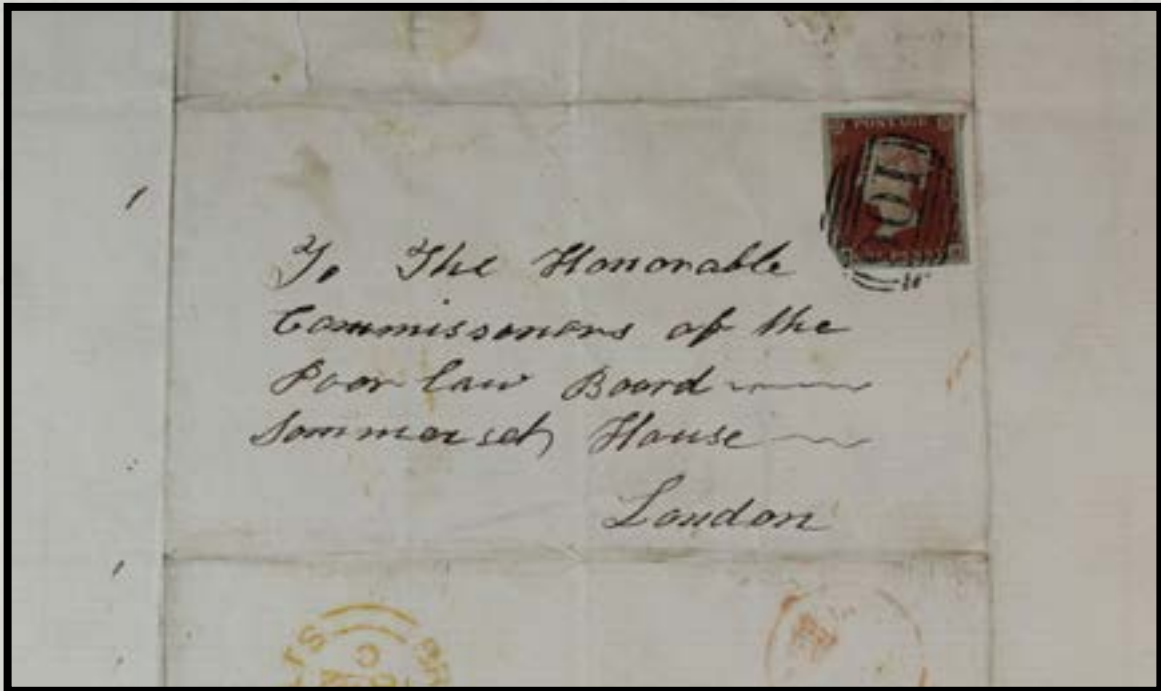 POSTAGE
To The Honorable
Commissonors of the
Poor law Board
Sommerset House
London